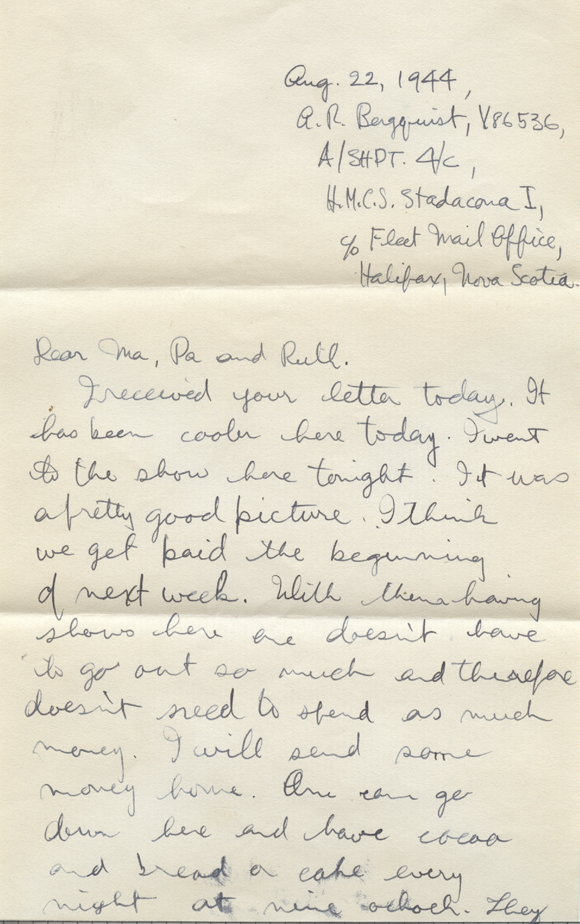 Aug. 22, 1944,
A.R. Bergquist, V86536,
A/SHPT. 4/c,
H.M.C.S. Stadacona I,
c/o Fleet Mail Office,
Halifax, Nova Scotia.
Dear Ma, Pa and Ruth.
I received your letter today. It
has been cooler here today. I went
to the show here tonight. It was
a pretty good picture. I think
we get paid the beginning
of next week. With them having
shows here one doesn't have
to go out so much and therefore
doesn't need to spend as much
money. I will send some
money home. One can go
down here and have cocoa
and bread or cake every
night at nine oclock. They